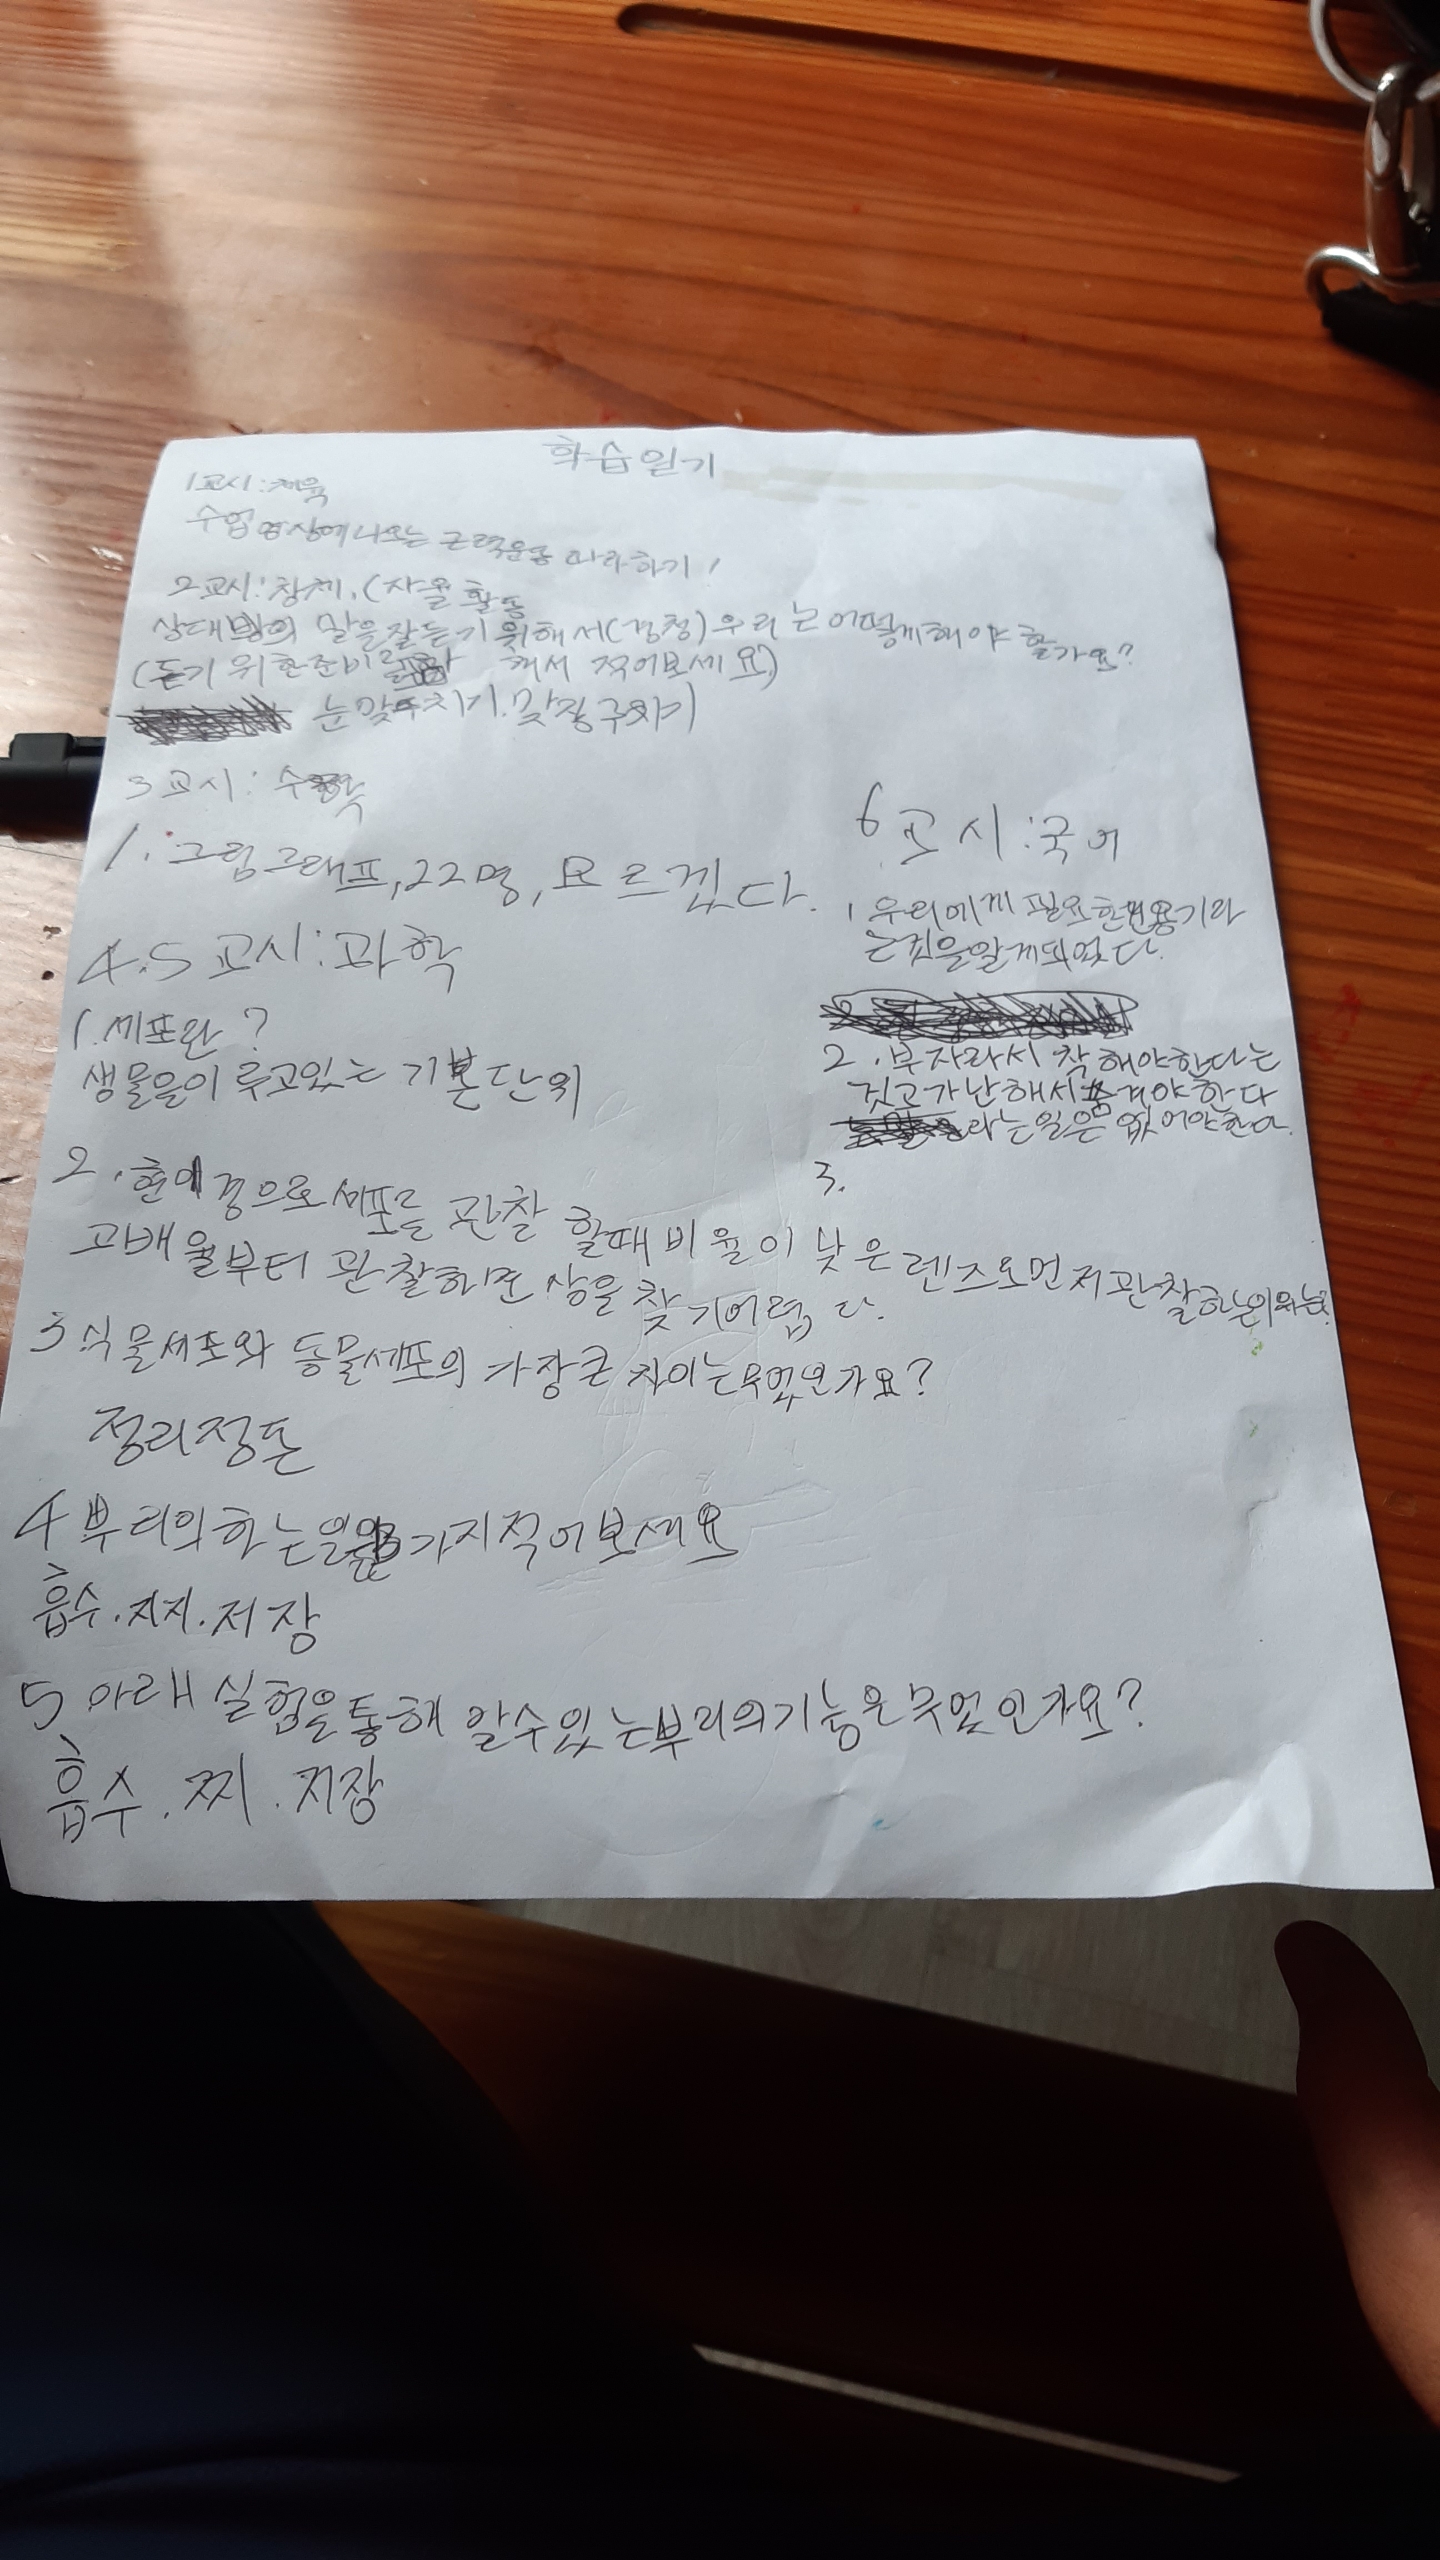 학습일기
1교시:체육
수업영상에나오는 근력운동 따라하기!
2교시:창체.(자율활동
상대방의 말을잘듣기위해서(경청)우리는어떻게해야할가요?
(듣기위한준비 해서 적어보세요)
눈맞추치기.맞장구치기
3교시: 수학
1.그림그래프,22명,모르겠다.
4.5교시:과학
1.세포란?
생물을이루고있는 기본단위
2.현미경으로세포를 관찰 할때비율이 낮은렌즈로먼저관찰하는이유는?
고배율부터 관찰하면 상을찾기어렵다.
3식물세포와 동물세포의 가장큰 차이는무엇인가요?
정리정돈
4뿌리의하는일 3가지적어보세요
흡수.지지.저장
5 아래실험을통해 알수있는뿌리의기능은무엇인가요?
흡수.지지.저장
6교시:국어
1우리에게필요한건용기라
는것을알게되었다.
2.부자라서 착해야한다는
것고가난해서 야한다
라는일은 없어야한다.
3.